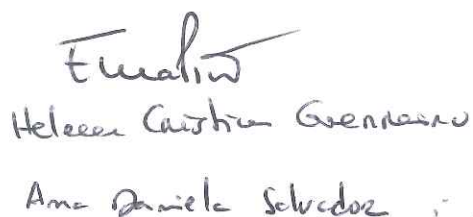 Helena Cristina Guerreiro
Ana Daniela Salvador